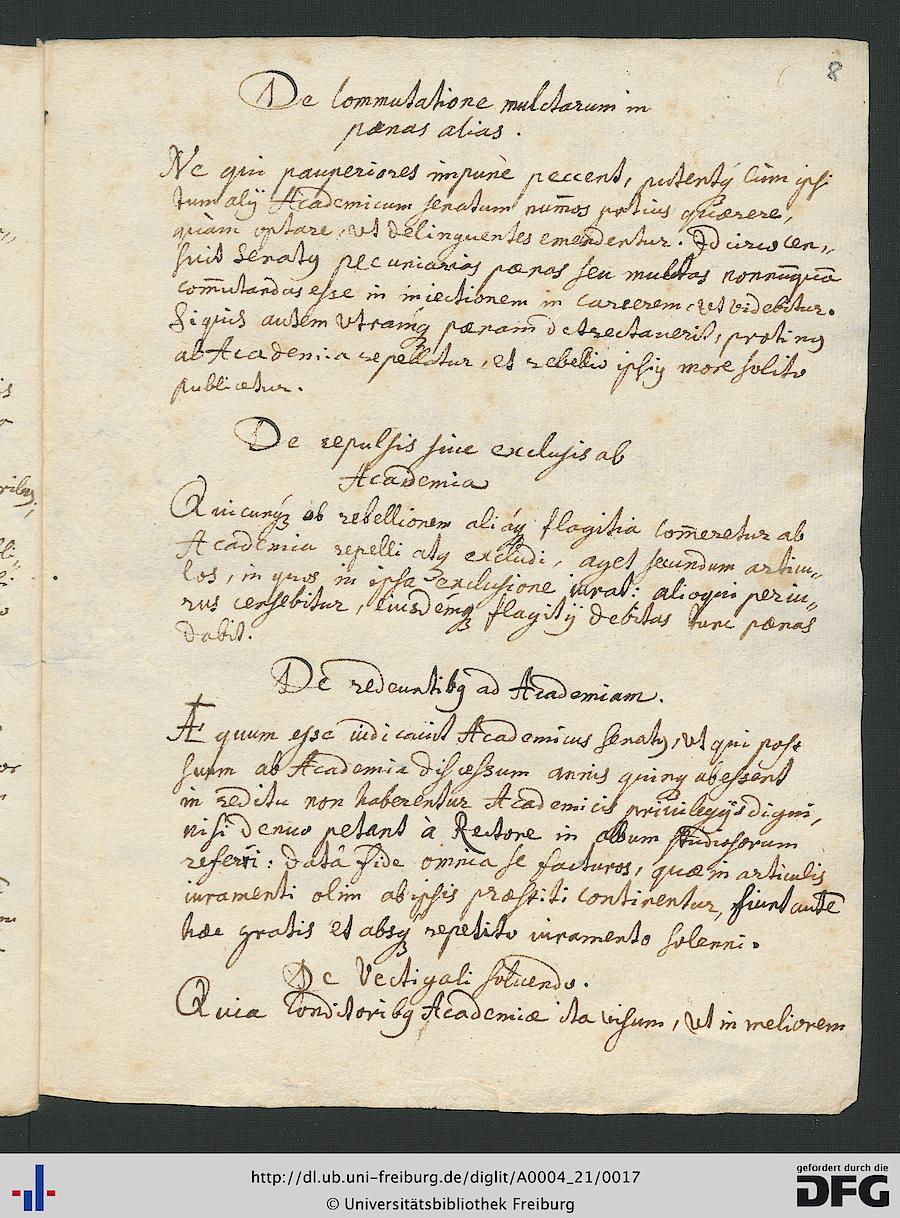 8
De Commutatione mulctarum in
pœnas alias.
Ne qui pauperiores impunè peccent, putentq́ cùm ipsi
tum alij Academicum senatum num̄os potius quærere,
quàm optare, ut delinquentes emendentur. Idcirco cen„
suit Senatꝰ pecuniarias pœnas seu mulctas nonnūquā
com̄utandas esse in iniectionem in carcerem, ut videbitur.
Siquis autem utramq́ pœnam detrectaverit, protinꝰ
ab Academia repellatur, et rebellio ipsiꝰ more solito
publicetur.
De repulsis sive exclusis ab
Academia
Quicunq́ ob rebellionem aliáq́ flagitia com̄eretur ab
Academia repelli atq́ excludi, aget secundum articu„
los, in quos in ipsa exclusione iurat: alioqui periu„
rus censebitur, eiusdémq́ flagitij debitas tunc pœnas
dabit.
De redeuntibꝰ ad Academiam.
Æquum esse iudicavit Academicus senatꝰ, ut qui post
suum ab Academia discessum annis quinq́ abessent
in reditu non haberentur Academicis privilegijs digni,
nisi denuo petant à Rectore in album studiosorum
referri: datâ fide omnia se facturos, quæ in articulis
iuramenti olim ab ipsis præstiti continentur, fiunt autē
hæc gratis et absq́ repetito iuramento solenni.
De Vectigali solvendo.
Quia Conditoribꝰ Academiæ ita visum, ut in meliorem
http://dl.ub.uni-freiburg.de/diglit/A0004_21/0017
© Universitätsbibliothek Freiburg
gefördert durch die
DFG